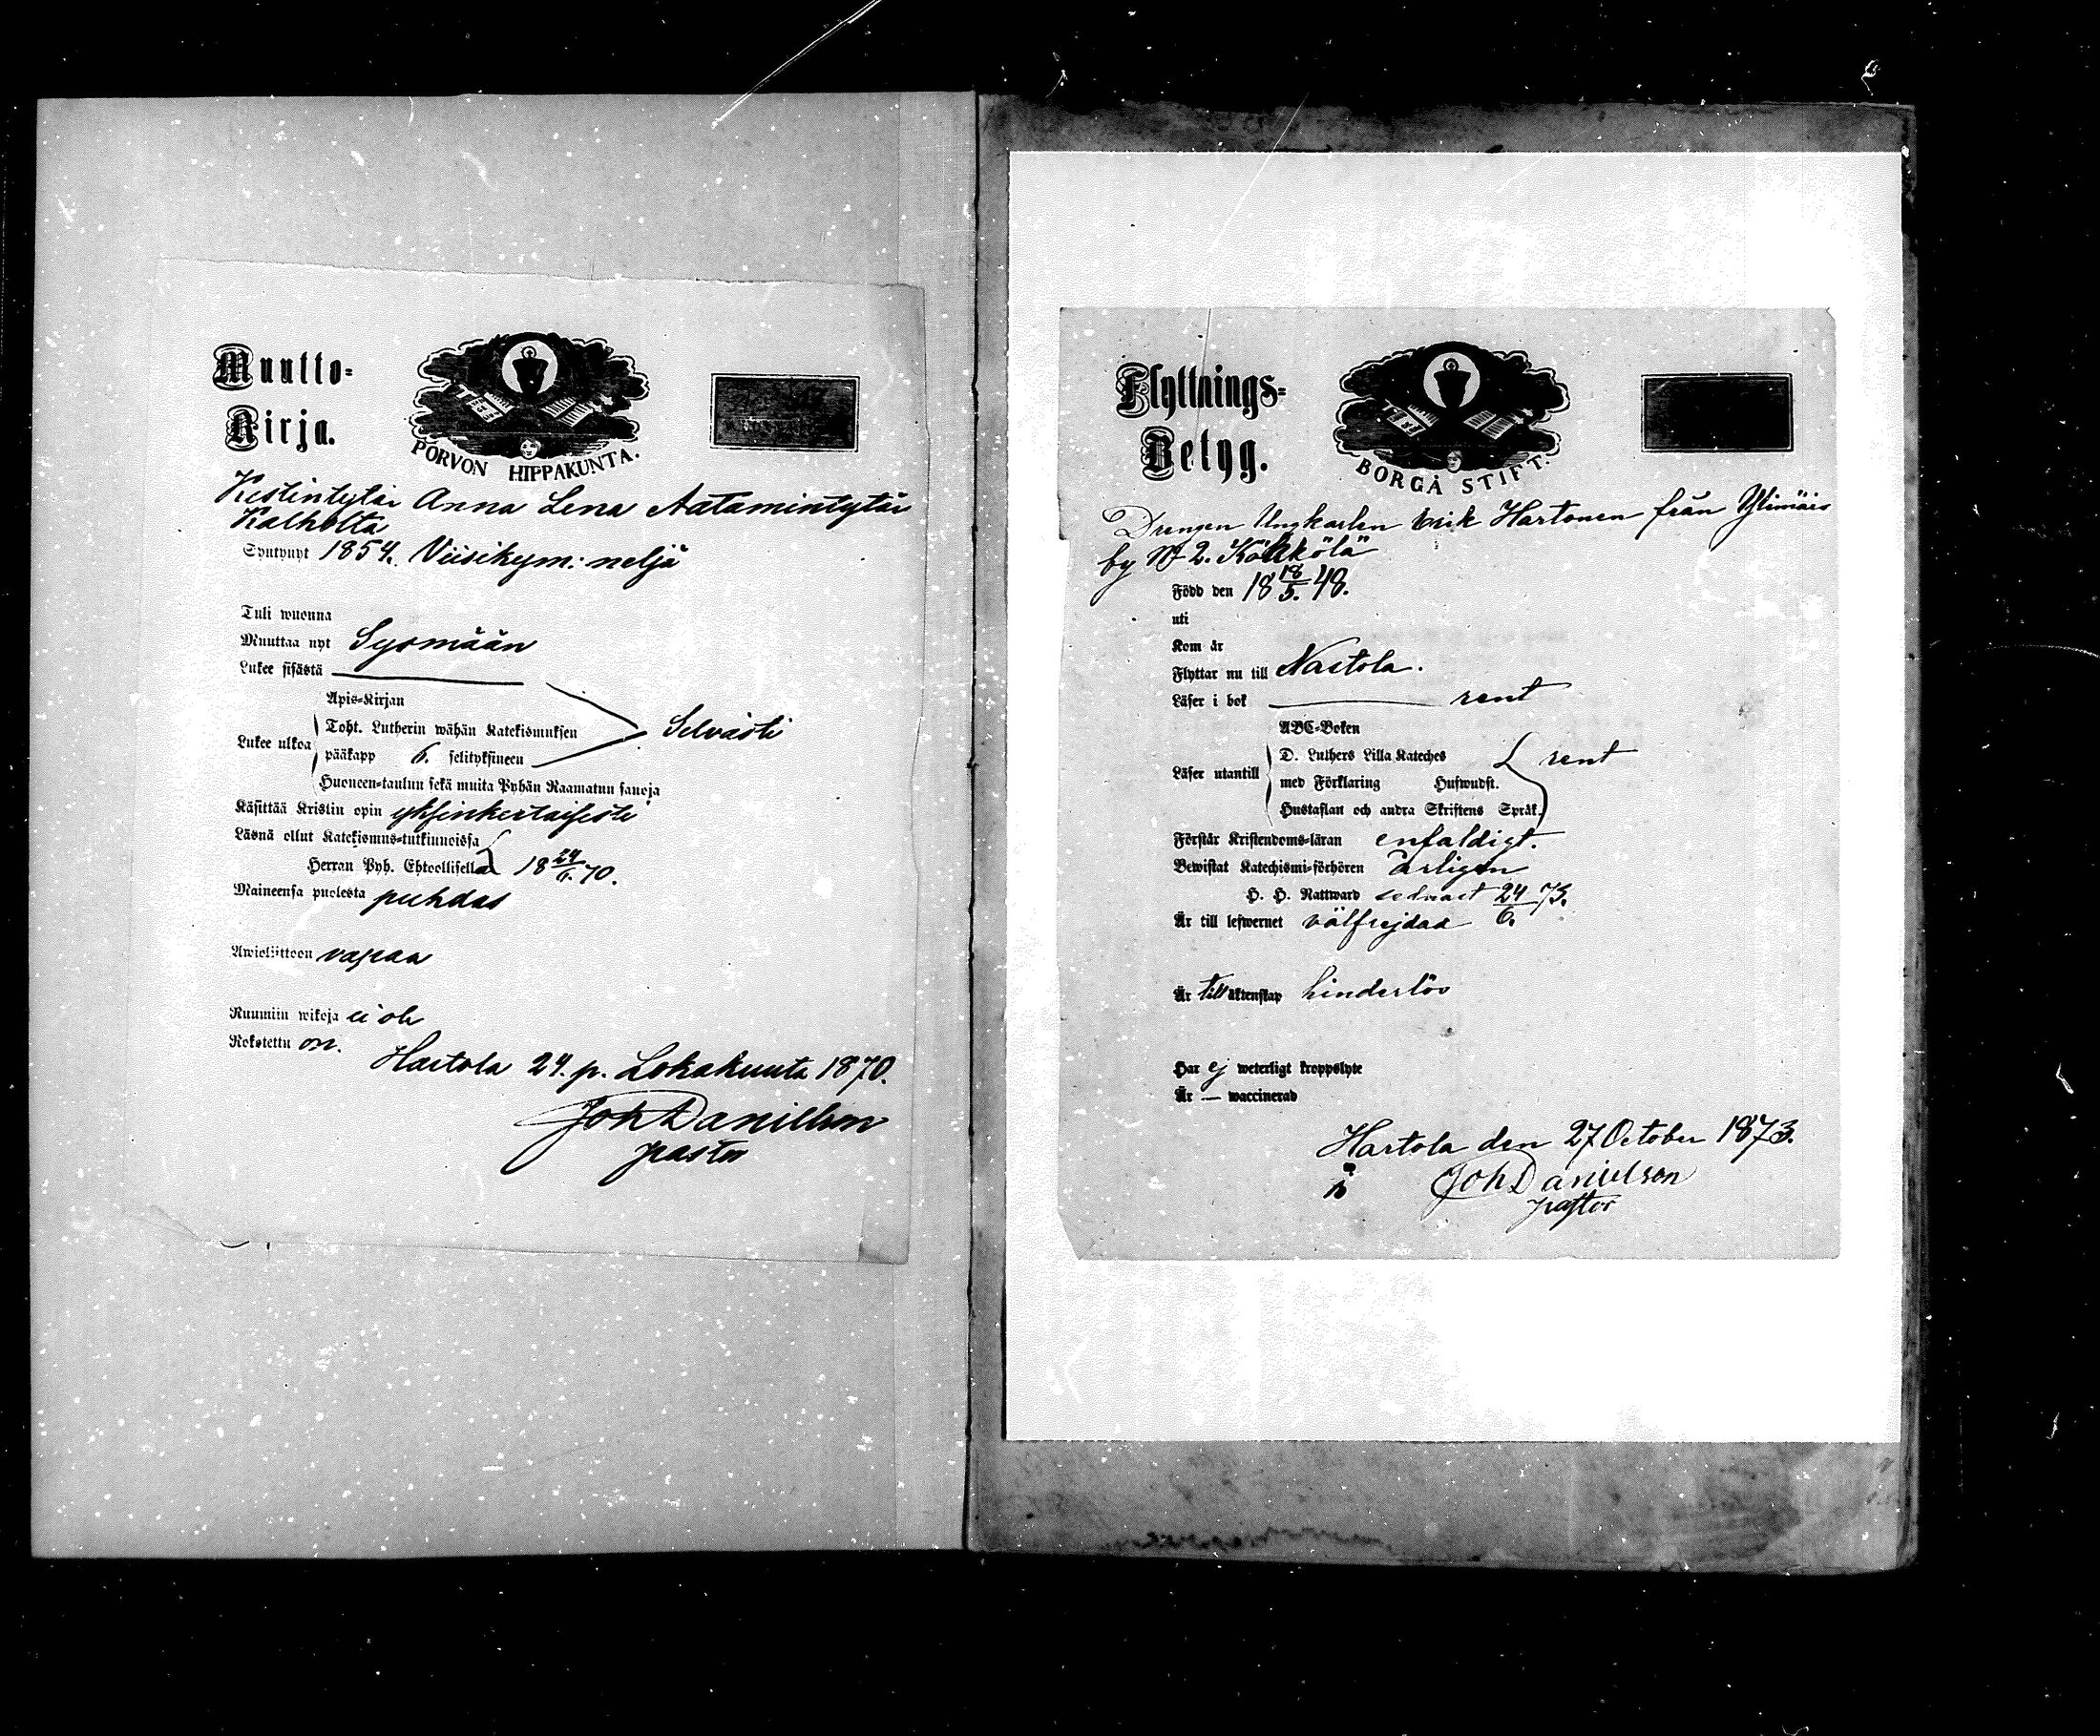 Muutto-
Kirja.
PORVON HIPPAKUNTA.
Kestintytär Anna Lena Aatamintytär
Kalholta
Syntynyt 1854. Viisikym: neljä
Tuli wuonna
Muuttaa nyt Sysmään
Lukee sisästä
Apis-Kirjan
Toht. Lutherin wähän Katekismuksen
Lukee ulkoa pääkapp 6. selityksineen Selvästi
Huoneen-taulun sekä muita Pyhän Raamatun sanoja
Käsittää Kristin opin yksinkertaisesti
Läsnä ollut Katekismus-tutkinnoissa
Herran Pyh. Ehtoollisella 18 24/6. 70.
Maineensa puolesta puhdas
Awioliittoon vapaa
Ruumiin wikoja ei ole
Rokotettu on.
Hartola 24. p. Lokakuuta 1870.
Joh Danielson
pastor
Flyttnings-
Betyg.
BORGÅ STIFT.
Drengen Ungkarlen Erik Hartonen från Ylimäis
by No 2. Kökkölä
Född den 18 18/5. 48.
uti
Kom år
Flyttar nu till Nastola.
Läser i bok rent
ABC-Boken
D. Luthers Lilla Kateches rent
Läser utantill med Förklaring Hufwudst.
Hustaflan och andra Skriftens Språk.
Förstår Kristendoms-läran enfaldigt.
Bewistat Katechismi-förhören årligen
H. H. Nattward sednast 24/6. 73.
Är till lefwernet välfrejdad
Är till äktenskap hinderlös
Har ej weterligt kroppslyte
Är — waccinerad
Hartola den 27 October 1873.
Joh Danielson
pastor